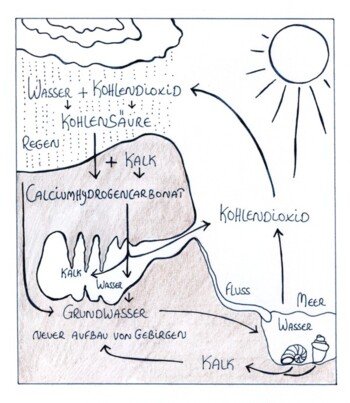 WASSER + KOHLENDIOXID
KOHLENSÄURE
REGEN
+ KALK
CALCIUMHYDROGENCARBONAT
KOHLENDIOXID
KALK
WASSER
FLUSS
MEER
GRUNDWASSER
WASSER
NEUER AUFBAU VON GEBIRGEN
KALK